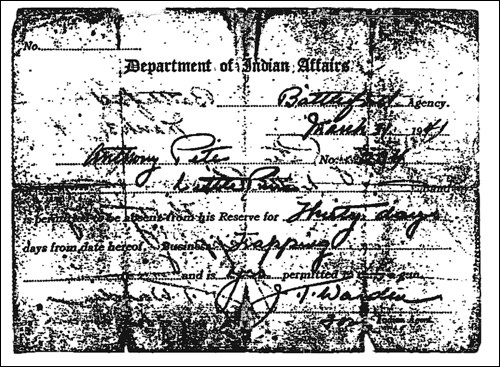 No.
Department of Indian Affairs
Battleford Agency.
March 19
Anthony Pete No.
Little Pine Band
is permitted to be absent from his Reserve for Thirty days
days from date hereof. Business Trapping
and is permitted to carry a gun.